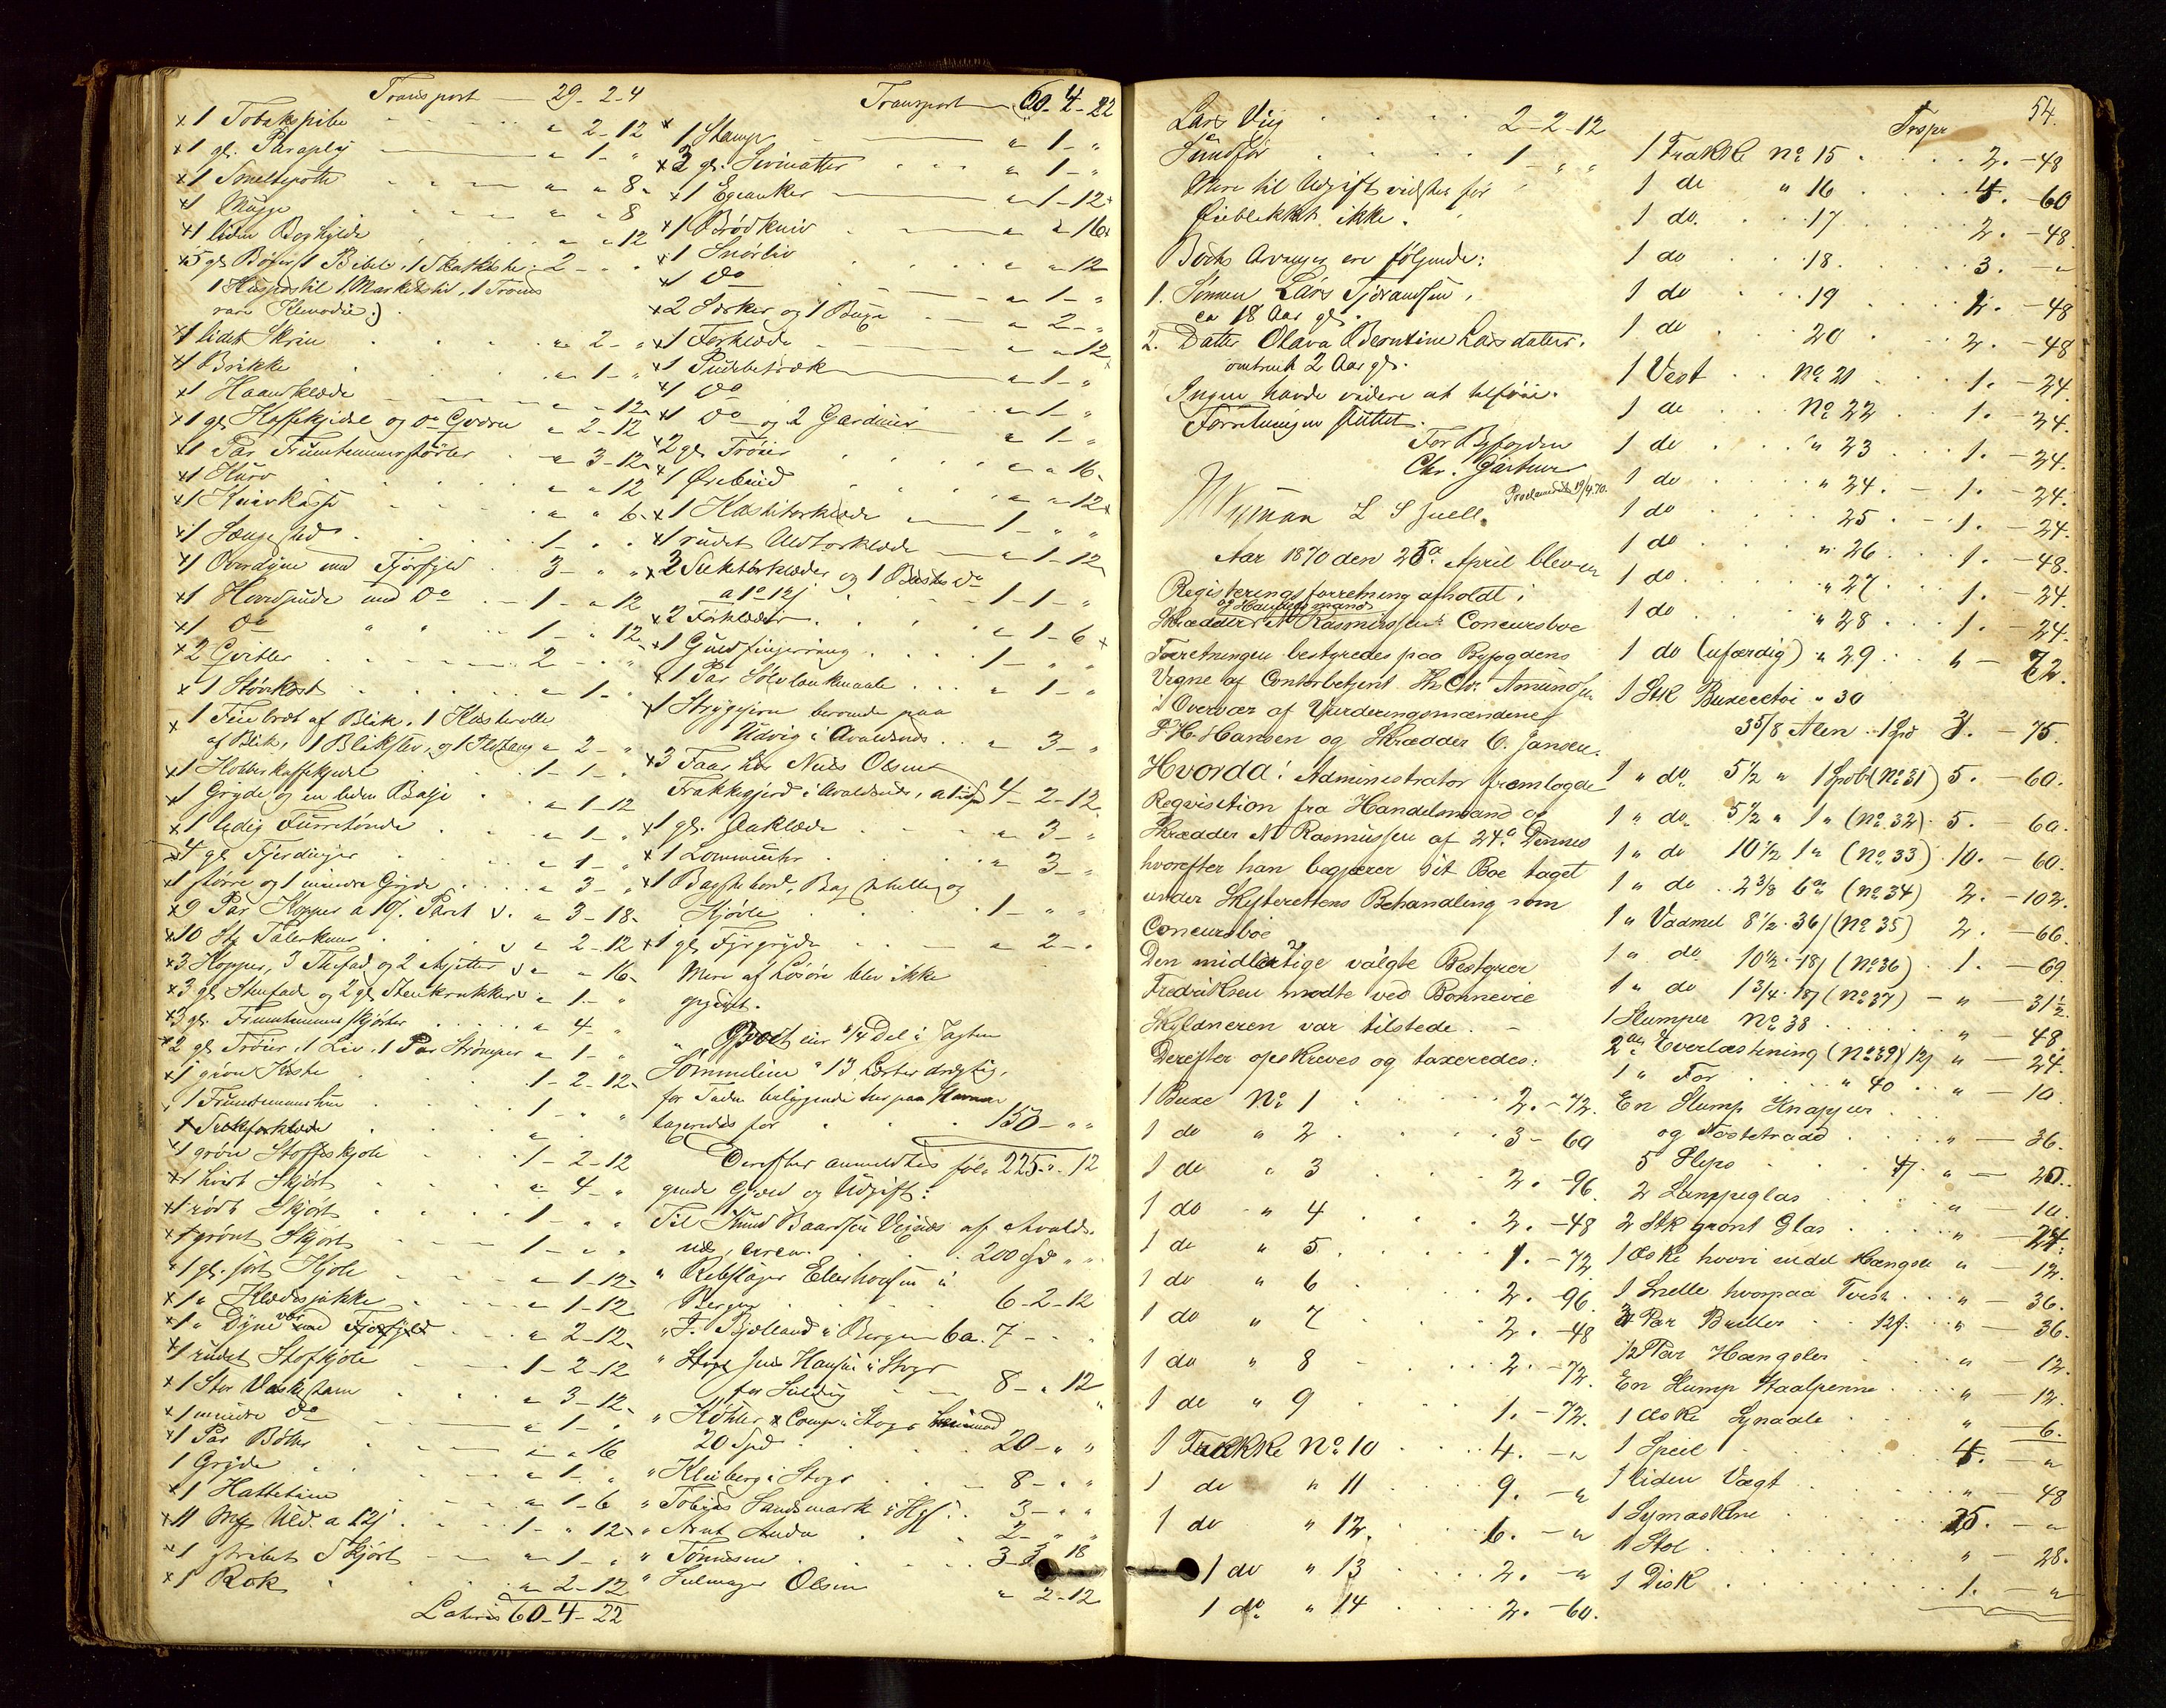 Transport — 29-2-4
x 1 Tobakspibe „ 2-12
x 1 gl. Paraply „ 1- „
x 1 Smeltepotte „ „ 8
x 1 Mugge „ „ 8
x 1 liden Boghylde „ „ 12
x 5 gl Bøger (1 Bibel, 1 2- „ „
1 Huspostil 1
x 1 lidet Skrin „ 2- „
x 1 Brikke „ 1- „
x 1 Haandklæde „ „ 12
x 1 gl Kaffekjedel og do Qværn „ 2-12
x 1 Par Fruentimmerstøvler „ 3-12
x 1 Kurv „ „ 12
x 1 Knivkasse „ „ 6
x 1 Sengested 1 „ „
x 1 Overdyne med Fjørfyld 3- „ „
x 1 Hovedpude med Do 1- „ 12
x 1 Do 1- „ 12
x 2 Gvitler 2 - „ „
x 1 Støvkost „ 1- „
x 1 Feiebræt af Blik, 1 Kasterolle
af Blik, 1 og 1 „ 2- „
x 1 Kobberkaffekjedel 1-1- „
x 1 Gryde og en liden Balje „ 1-12
x 1 ledig Tønde „ 1- „
x 4 gl Fjerdinger „ 1- „
x 1 større og 1 mindre Gryde „ 3- „
x 9 Par Kopper a 10s. Paret „ 3-18
x 10 Stk Talerkner „ 2-12
x 3 Kopper, 3 Thefad og 2 Asjetter „ „ 16
x 3 gl. Stenfade og 2 gl Stenkrukker „ 1- „
x 3 gl. Fruentimmerskjørter „ 4 „
x 2 gl Trøier, 1 Liv, 1 Par Strømper „ 1- „
x 1 grøn Kiste 1-2-12
1 Fruentimmerhue 1- „ „
1 Silkeforklæde
x 1 grøn Stoffskjole 1-2-12
x 1 hvidt Skjørt „ 4- „
x 1 rødt Skjørt 1- „ „
x 1 grønt Skjørt 1- „ „
x 1 gl. sort Kjole „ 1-12
x 1 „ Klædesjakke „ 1-12
x 1 „ Dynevar „ 2-12
x 1 rudet Stofkjole 1-2-12
x 1 Stor Vaskestam „ 3-12
x 1 mindre Do „ 1- „
x 1 Par Bøtter „ „ 16
1 Gryde „ 1- „
x 1 Hatteæske „ 1-6
x 11 Mk Uld a 12s 1- „ 12
x 1 stribet Skjørt „ 1- „
x 1 Rok „ 2-12
Lateris 60-4-22
Transport — 60-4-22
x 1 Stamp „ 1- „
x 3 gl. Sivmatter „ 1- „
x 1 Egeanker „ 1-12
x 1 Brødkniv „ „ 16
x 1 Snørliv „ „ 12
x 1 Do „ 1- „
x 2 Særker og 1 Buxe „ 2- „
x 1 Forklæde „ „ 12
x 1 Pudebetræk „ 1- „
x 1 Do „ 1- „
x 1 Do og 2 Gardiner „ 1- „
x 2 gl. Trøier „ „ 16
x 1 Ørebaand „ „ 12
x 1 1- „ „
x 1 rudet Uldtørklæde „ 1-12
x 3 Silketørklæder og 1 Do
1-1- „
x 2 Forklæder „ 1-6
x 1 Guldfingerring 1- „ „
x 1 Par Sølv „ 1- „
x 1 Strygejern beroende paa
Udvig i Avaldsnes „ 3- „
x 3 Faar hos Niels Olsen
i Avaldsnes, 4-2-12
x 1 gl. Aaklæde „ 3- „
x 1 Lommeuhr „ 3- „
x 1 Bagstebord, Bag og
Kjævle 1- „ „
x 1 gl Fyrgryde „ 2- „
Mere af Løsøre blev ikke
opgivet.
„ Boet eier 1/4 Del i Jagten
Sømmeliene „ 13 Læster drægtig,
for Tiden beliggende her paa Havnen
taxeredes for 150- „ „
225 „ 12
Derefter anmeldtes føl-
gende Gjæld og Udgift:
Til Knud Baardsen Veines af Avalds-
nes, 200 Spd „ „
„ Rebslager Ellerhousen i
Bergen 6-2-12
„ F. Bjelland i Bergen 6 a 7 - „ „
„ Jens Hansen i Stogs
for 8- „ 12
„ Køhler & Comp i Stogr
20 Spd 20- „ „
„ Kleiberg i Stogr 8- „ „
„ Tobias Sandsmark i Hgs. 3- „ „
„ Arnt 2- „ „
„ Tønnesen 3-3 18
„ Olsen „ 2-12
Lars Vig 2-2-12
Sundfør 1- „ „
Mere til Udgift vidstes for
Øieblikket ikke.
Boets Arvinger ere følgende:
1. Sønnen Lars Tjørandsen,
ca 18 Aar gl.
2. Datter Olava Berntine Larsdatter,
omtrent 2 Aar gl.
Ingen havde videre at tilføie.
Forretningen sluttet.
For Byfogden
Chr. Gärtner
Nyman L S Juell. 19/4.70.
Aar 1870 den 25de April blev en
Registreringsforretning afholdt i
og Handelsmand
Skrædder N Rasmussens Concursboe
Forretningen bestyredes paa Byfogdens
Vegne af Contorbetjent Hr Chr. Amundsen
i Overvær af Vurderingsmændene
P. H. Hansen og Skrædder C. Jansen.
Hvorda! Administrator fremlagde
Reqvisition fra Handelsmand og
Skrædder N Rasmussen af 24de Dennes
hvorefter han begjærer sit Boe taget
under Skifterettens Behandling som
Concursboe
Den midlertige valgte Bestyrer
Fredriksen mødte ved Bonnevie
Skyldneren var tilstede. –
Derefter opskreves og taxeredes:
1 Buxe No 1 2. -72.
1 do „ 2 3 - 60
1 do „ 3 2. -96.
1 do „ 4 2. -48
1 do „ 5 1. -72
1 do „ 6 2. -96.
1 do „ 7 2. -48
1 do „ 8 2. -72.
1 do „ 9 1. -72.
1 Frakke No 10 4. - „
1 do „ 11 9. - „
1 do „ 12. 6. - „
1 do „ 13 2. - „
1 do „ 14 2. -60.
54.
Trspr
1 Frakke No 15 2. -48
1 do „ 16 4. -60
1 do. 17 2. -48.
1 do 18. 3. - „
1 do 19 2. -48
1 do 20 2. -48
1 Vest No 21 1. -24.
1 do No 22 1. -24.
1 do „ 23 1. -24.
1 do „ 24. 1. -24.
1 do 25 1. -24.
1 do „ 26 1. -48.
1 do „ 27 1. -24.
1 do „ 28 1. -24.
1 do (ufærdig) „ 29 „ - 72.
1 Stk Buxetøi „ 30
3 5/8 Alen 1 Spd 3. -75.
1 „ do 5 1/2 „ 1 Spd (No 31) 5. -60.
1 „ do 5 1/2 „ 1 „ (No 32) 5. -60.
1 „ do 10 1/2 1 „ (No 33) 10. -60.
1 „ do 2 3/8 (No 34) 2. -102.
1 „ Vadmel 8 1/2. 36s (No 35) 2. -66.
1 „ do 10 1/2. 18s (No 36) 1. -69
1 „ do 1 3/4. 18s (No 37) - „ -31 1/2.
1 Slumper No 38 „ -48.
2 al. Everlastening (No 39) 12s „ -24.
1 „ For „ 40 „ -10.
En Slump Knapper
og Nøstetraad „ -36.
5 Slips 4s. „ -20.
2 Lampeglas „ -10.
2 Stk grønt Glas „ -24.
1 Æske hvori endel Hængsler „ -12.
1 Snelle hvorpaa Tvist „ -36.
3 Par Briller 12s. „ -36.
12 Par Hængsler „ -12
En Slump Staalpenne „ -12.
1 Æske Synaale „ 6.
1 Speil 4. - „
1 liden Vægt „ -48
1 Symaskine 25. - „
1 Stol „ -28.
1 Disk 1. - „